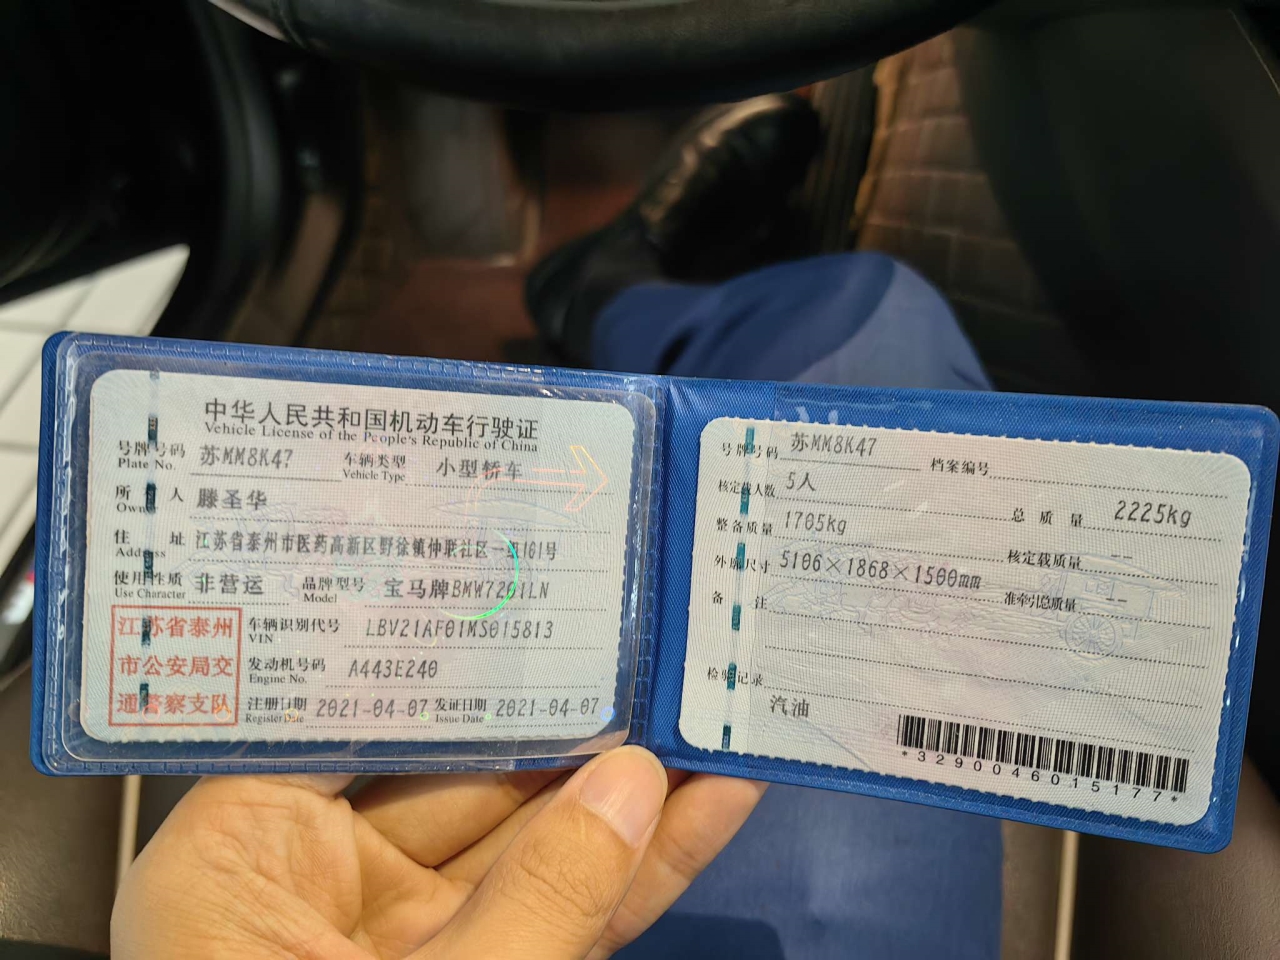 中华人民共和国机动车行驶证
Vehicle License of the People's Republic of China
号牌号码 苏MM8K47 车辆类型 小型轿车
Plate No. Vehicle Type
所有人 滕圣华
Owner
住址 江苏省泰州市医药高新区野徐镇仲联社区一组161号
Address
使用性质 非营运 品牌型号 宝马牌BMW7201LN
Use Character Model
江苏省泰州
市公安局交
通警察支队
车辆识别代号 LBV21AF01MS015813
VIN
发动机号码 A443E240
Engine No.
注册日期 2021-04-07 发证日期 2021-04-07
Register Date Issue Date
号牌号码 苏MM8K47 档案编号
核定载人数 5人 总质量 2225kg
整备质量 1705kg 核定载质量 --
外廓尺寸 5106×1868×1500mm 准牵引总质量 --
备注
检验记录
汽油
*3290046015177*